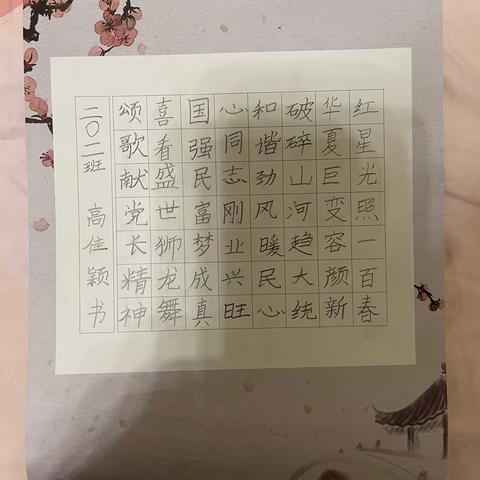 红星光照一百春
华夏巨变容颜新
破碎山河趋大统
和谐劲风暖民心
心同志刚业兴旺
国强民富梦成真
喜看盛世狮龙舞
颂歌献党长精神
二〇二班 高佳颖书